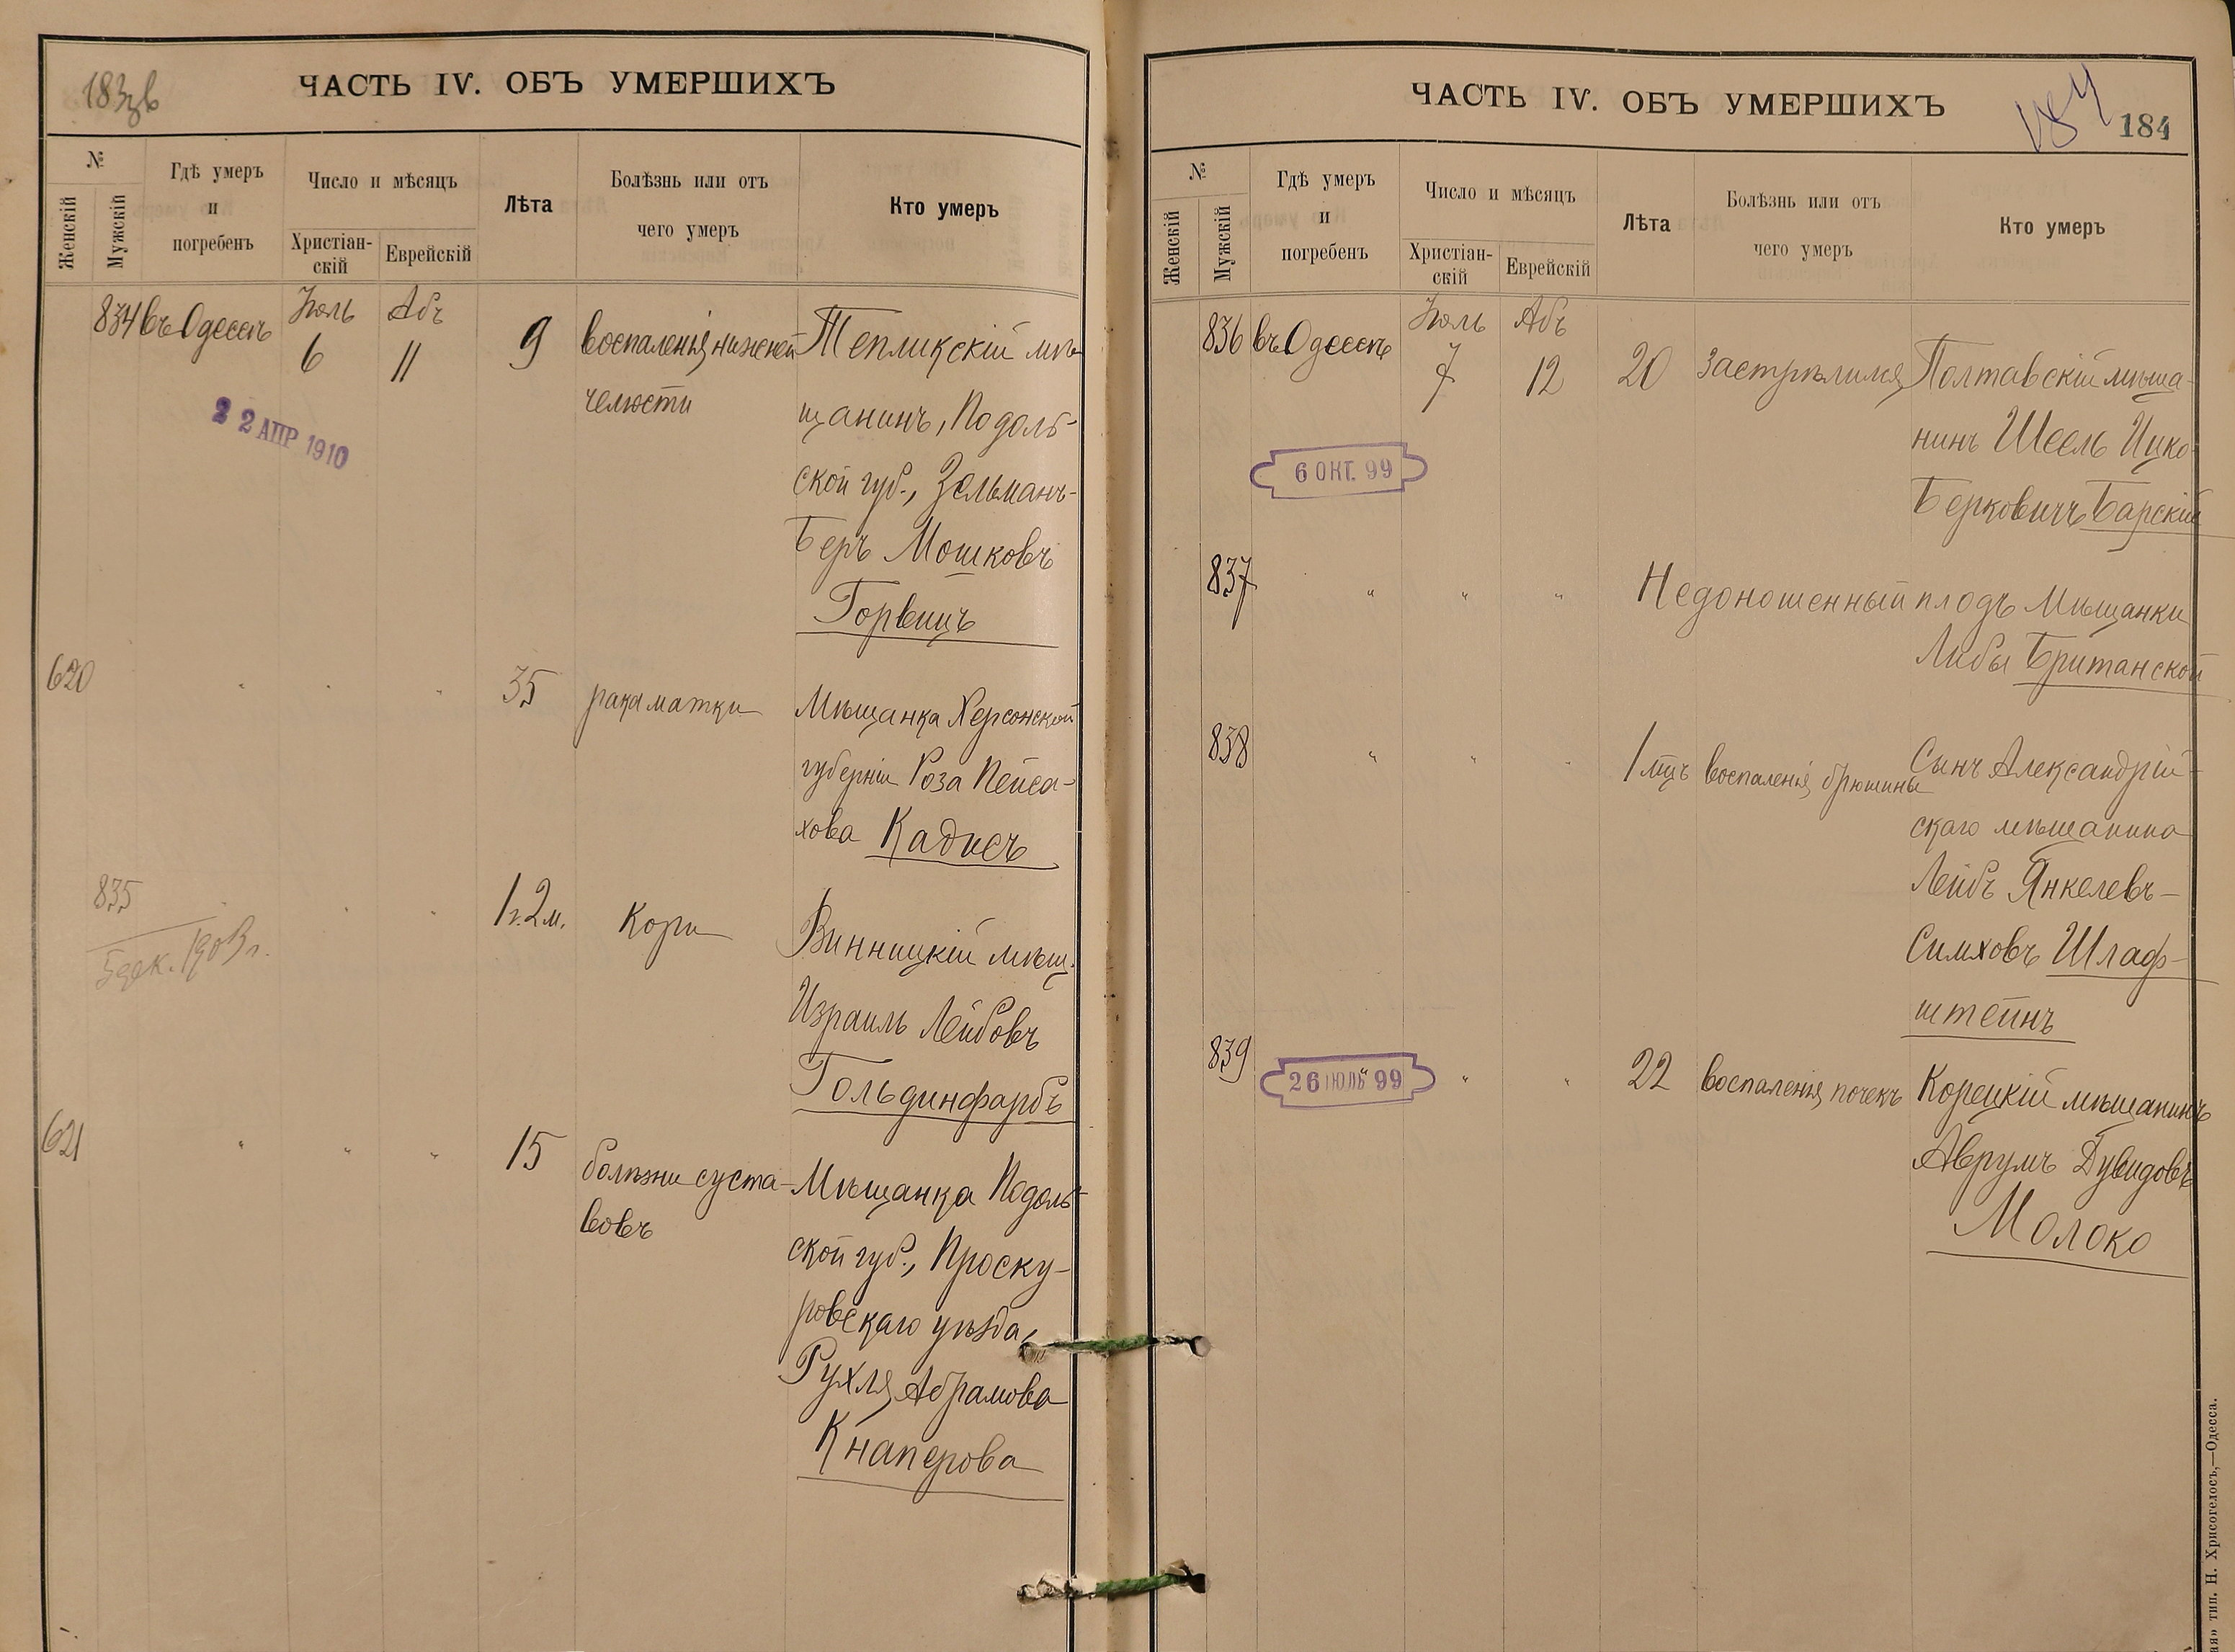 183 об
ЧАСТЬ IV. ОБЪ УМЕРШИХЪ
№
Женскій
Мужскій
Гдѣ умеръ
и
погребенъ
Число и мѣсяцъ
Христіан-
скій
Еврейскій
Лѣта
Болѣзнь или отъ
чего умеръ
Кто умеръ
Іюль Абъ
834 въ Одессѣ 6 11 9 воспаленія нижней Тепликскій мѣ-
челюсти щанинъ, Подоль-
22 АПР 1910
ской губ., Зельманъ-
Беръ Мошковъ
Горвицъ
620 " " " 35 рака матки Мѣщанка Херсонской
губерніи Роза Пейса-
хова Кадисъ
835 " " " 1 г. 2 м. Кори Винницкій мѣщ.
5 дек. 1903 г.
Израиль Лейбовъ
Гольдинфарбъ
621 " " " 15 болѣзни суста- Мѣщанка Подоль-
вовъ ской губ., Проску-
ровскаго уѣзда,
Рухля Абрамова
Кнаперова
ЧАСТЬ IV. ОБЪ УМЕРШИХЪ
184
184
№
Женскій
Мужскій
Гдѣ умеръ
и
погребенъ
Число и мѣсяцъ
Христіан-
скій
Еврейскій
Лѣта
Болѣзнь или отъ
чего умеръ
Кто умеръ
Іюль Абъ
836 въ Одессѣ 7 12 20 застрѣлился Полтавскій мѣща-
нинъ Шеель Ицко-
6 ОКТ. 99
Берковичъ Барскій
837 " " " Недоношенный плодъ Мѣщанки
Либы Британской
838 " " " 1 мцъ воспаленія брюшины Сынъ Александрій-
скаго мѣщанина
Лейбъ Янкелевъ-
Симховъ Шлаф-
штейнъ
839 " " " 22 воспаленія почекъ Корецкій мѣщанинъ
26 ІЮЛЬ 99
Аврумъ Дувидовъ
Молоко
тип. Н. Хрисогелосъ,—Одесса.